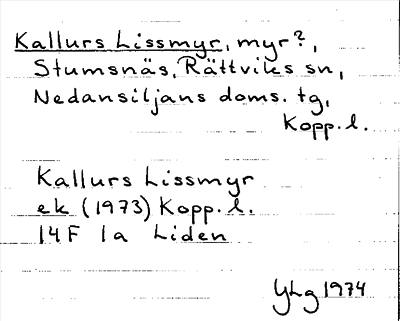 Kallurs Lissmyr, myr?,
Stumsnäs, Rättviks sn,
Nedansiljans doms. tg,
Kopp. l.
Kallurs Lissmyr
ek (1973) Kopp. l.
14F 1a Liden
YLg 1974